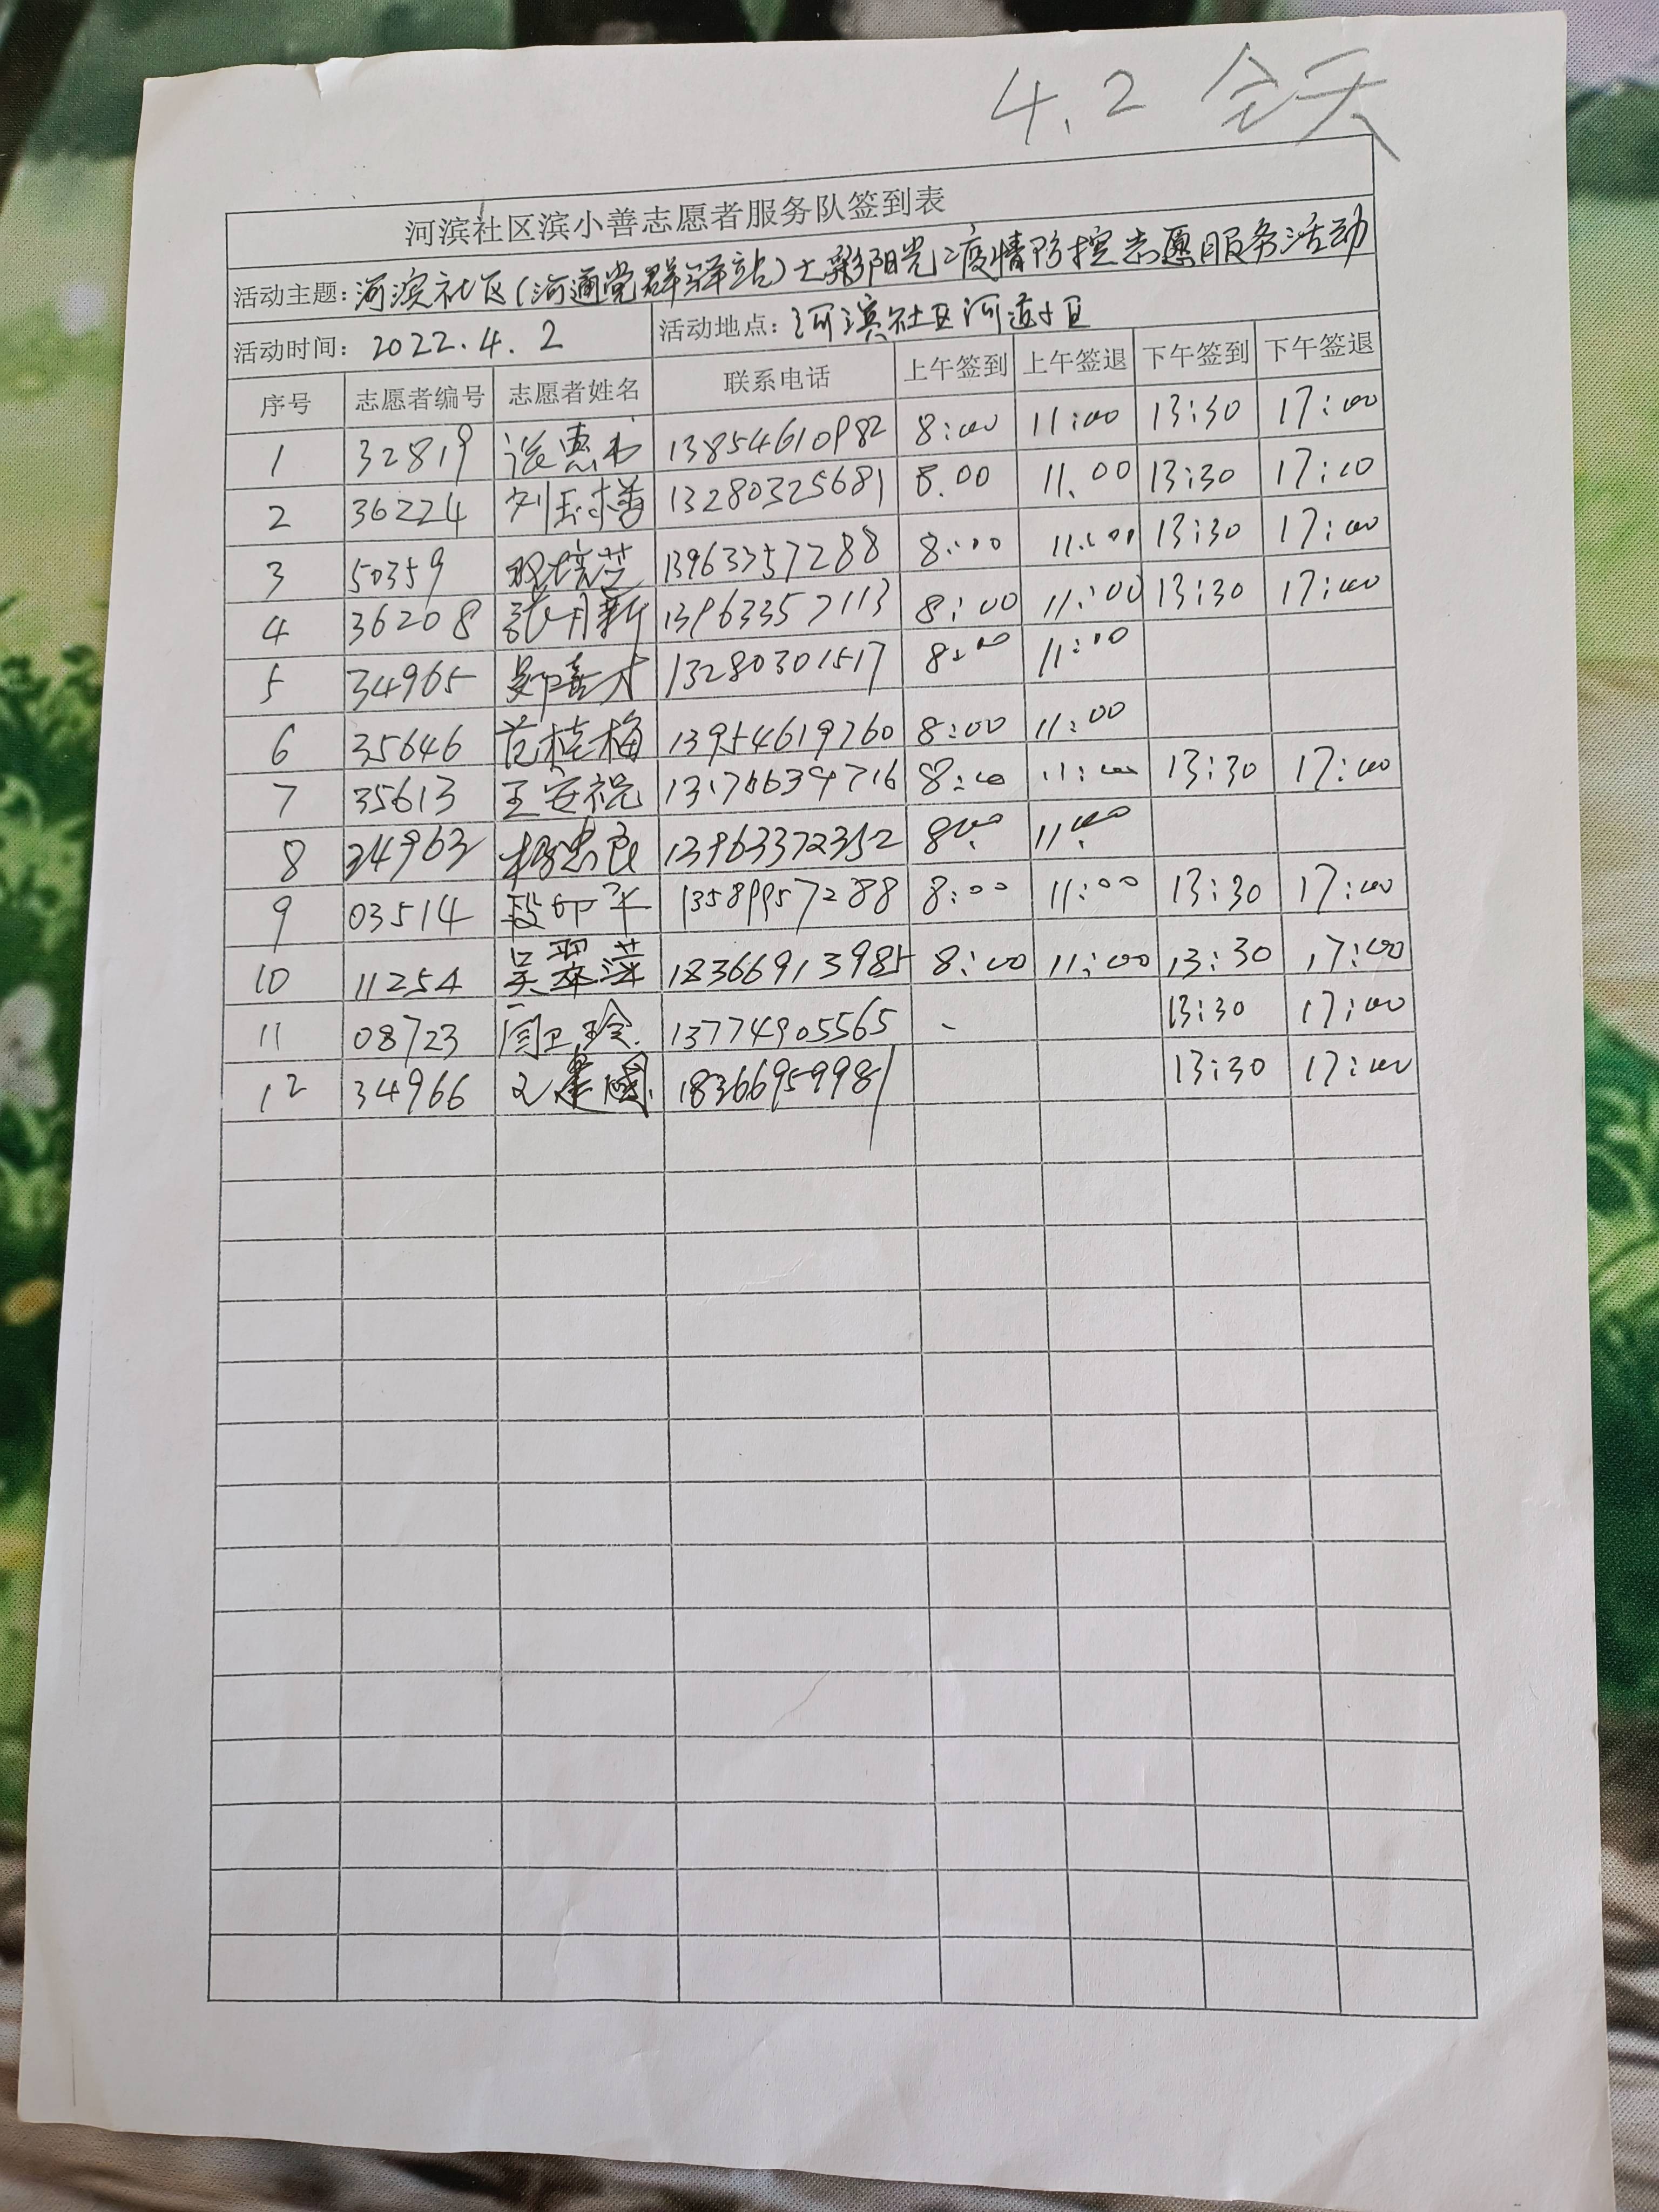 4.2 全天
河滨社区滨小善志愿者服务队签到表
活动主题: 河滨社区(河通党群驿站)七彩阳光疫情防控志愿服务活动
活动时间: 2022.4.2 活动地点: 河滨社区河通小区
序号 志愿者编号 志愿者姓名 联系电话 上午签到 上午签退 下午签到 下午签退
1 32819 13854610982 8:00 11:00 13:30 17:00
2 36224 刘玉增 13280325681 8.00 11.00 13:30 17:00
3 50359 培芝 13963357288 8:00 11:00 13:30 17:00
4 36208 张月新 13963357113 8:00 11:00 13:30 17:00
5 34965 郑喜才 13280301517 8:00 11:00
6 35646 范桂梅 13954619760 8:00 11:00
7 35613 王安祝 13176639716 8:00 11:00 13:30 17:00
8 34963 杨忠良 13963372352 8:00 11:00
9 03514 段卬平 13589957288 8:00 11:00 13:30 17:00
10 11254 吴翠萍 18366913985 8:00 11:00 13:30 17:00
11 08723 闫卫玲 13774905565 13:30 17:00
12 34966 建国 18366959981 13:30 17:00